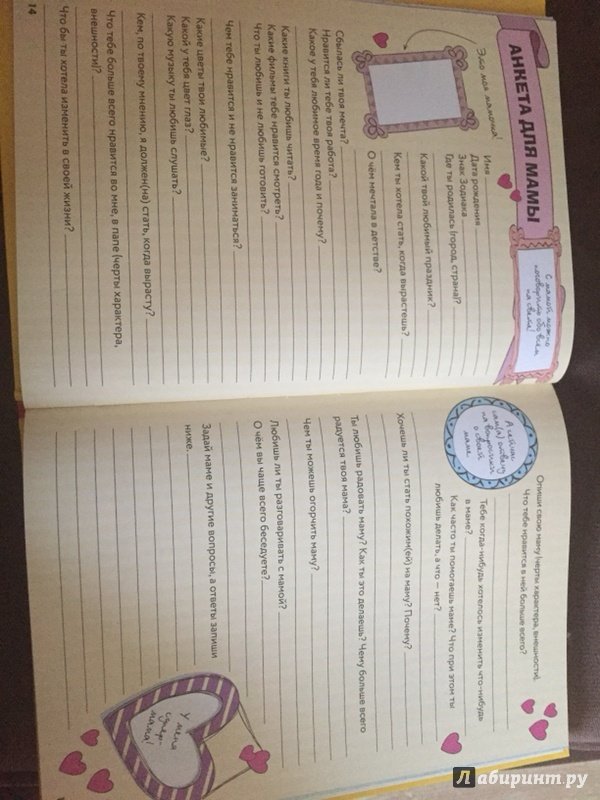 АНКЕТА ДЛЯ МАМЫ
С мамой можно
поговорить обо всём
на свете!
Это моя мамочка!
Имя
Дата рождения
Знак Зодиака
Где ты родилась (город, страна)?
Какой твой любимый праздник?
Кем ты хотела стать, когда вырастешь?
О чём мечтала в детстве?
Сбылась ли твоя мечта?
Нравится ли тебе твоя работа?
Какое у тебя любимое время года и почему?
Какие книги ты любишь читать?
Какие фильмы тебе нравится смотреть?
Что ты любишь и не любишь готовить?
Чем тебе нравится и не нравится заниматься?
Какие цветы твои любимые?
Какой у тебя цвет глаз?
Какую музыку ты любишь слушать?
Кем, по твоему мнению, я должен(на) стать, когда вырасту?
Что тебе больше всего нравится во мне, в папе (черты характера,
внешности)?
Что бы ты хотела изменить в своей жизни?
14
А сейчас
сам(а) отвечу
на вопросики
о своей
маме
Опиши свою маму (черты характера, внешности).
Что тебе нравится в ней больше всего?
Тебе когда-нибудь хотелось изменить что-нибудь
в маме?
Как часто ты помогаешь маме? Что при этом ты
любишь делать, а что — нет?
Хочешь ли ты стать похожим(ей) на маму? Почему?
Ты любишь радовать маму? Как ты это делаешь? Чему больше всего
радуется твоя мама?
Чем ты можешь огорчить маму?
Любишь ли ты разговаривать с мамой?
О чём вы чаще всего беседуете?
Задай маме и другие вопросы, а ответы запиши
ниже.
У меня
супер-
мама!
Лабиринт.ру